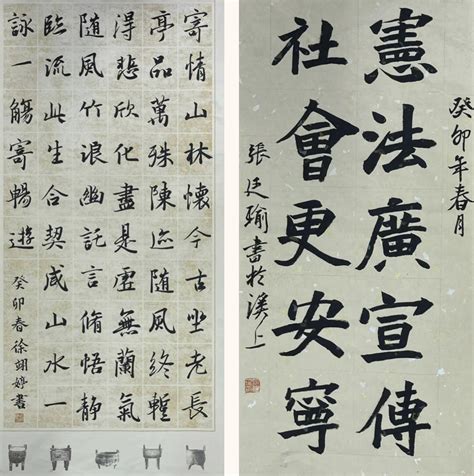 寄情山林懷今古坐老長
亭品萬殊陳迹隨風終
得悲欣化盡是虛無蘭氣
隨風竹浪幽託言脩悟靜
臨流此生合契成山水一
詠一觴寄暢遊
癸卯春徐翊婷書
癸卯年春月
憲法廣宣傳
社會更安寧
張廷瑜書於溪上